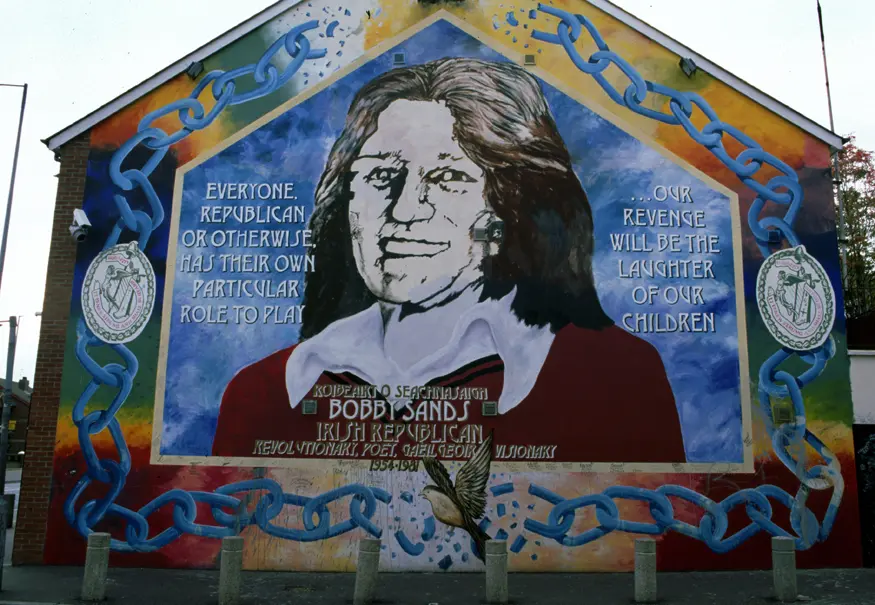 EVERYONE,
REPUBLICAN
OR OTHERWISE,
HAS THEIR OWN
PARTICULAR
ROLE TO PLAY
...OUR
REVENGE
WILL BE THE
LAUGHTER
OF OUR
CHILDREN
ROIBEAIRD O SEACHNASAIGH
BOBBY SANDS
IRISH REPUBLICAN
REVOLUTIONARY, POET, GAEILGEOIR VISIONARY
1954-1981